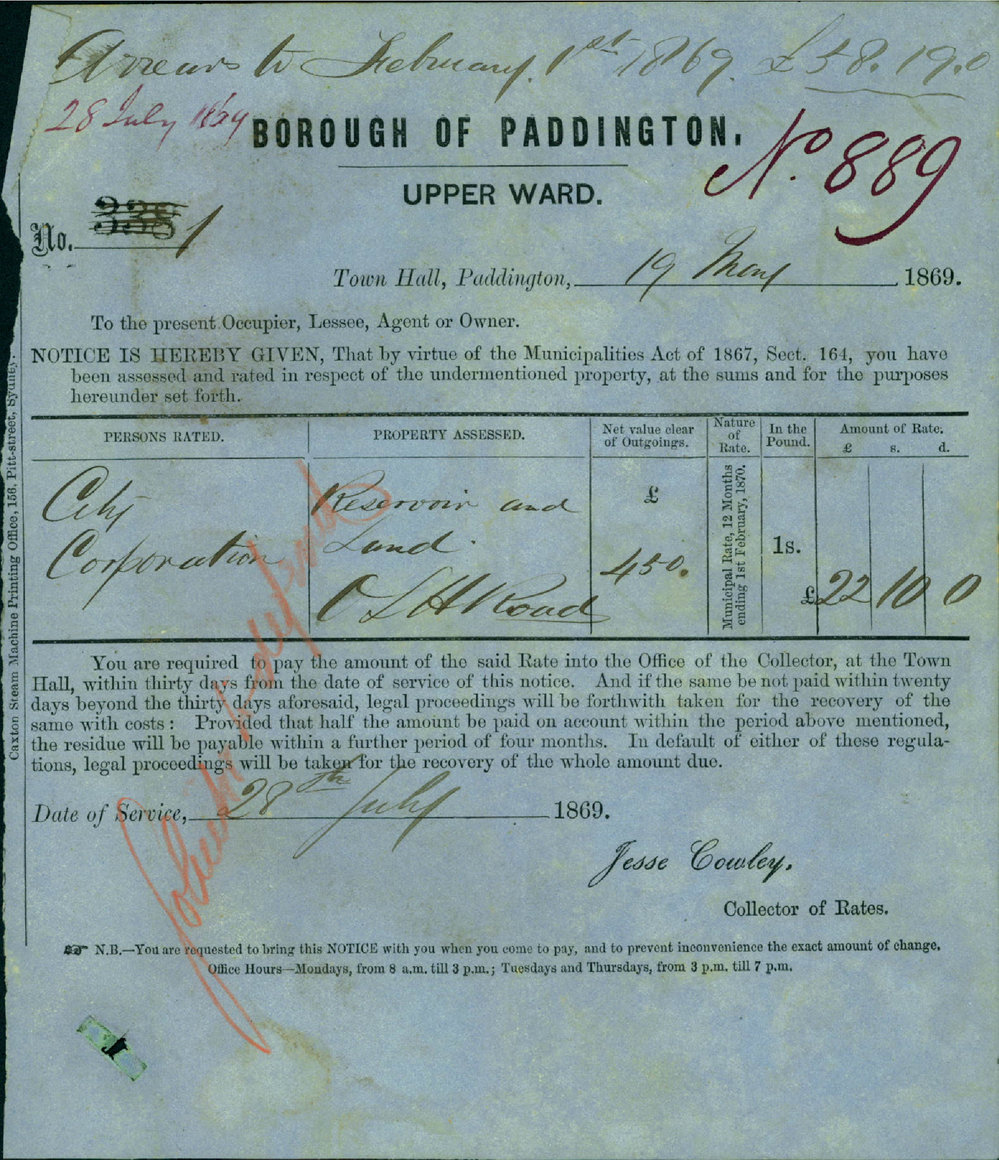 Arrears to February. 1st 1869. £58.19.0
28 July 1869
BOROUGH OF PADDINGTON.
No. 889
UPPER WARD.
No. 338 1
Town Hall, Paddington, 19 May 1869.
To the present Occupier, Lessee, Agent or Owner.
NOTICE IS HEREBY GIVEN, That by virtue of the Municipalities Act of 1867, Sect. 164, you have
been assessed and rated in respect of the undermentioned property, at the sums and for the purposes
hereunder set forth.
PERSONS RATED.
PROPERTY ASSESSED.
Net value clear
of Outgoings.
Nature
of
Rate.
In the
Pound.
Amount of Rate.
£ s. d.
City
Corporation
Reservoir and
Land.
O S H Road
£
450.
Municipal Rate, 12 Months
ending 1st February, 1870.
1s.
£22 10 0
You are required to pay the amount of the said Rate into the Office of the Collector, at the Town
Hall, within thirty days from the date of service of this notice. And if the same be not paid within twenty
days beyond the thirty days aforesaid, legal proceedings will be forthwith taken for the recovery of the
same with costs: Provided that half the amount be paid on account within the period above mentioned,
the residue will be payable within a further period of four months. In default of either of these regula-
tions, legal proceedings will be taken for the recovery of the whole amount due.
Date of Service, 28th July 1869.
Jesse Cowley,
Collector of Rates.
N.B.—You are requested to bring this NOTICE with you when you come to pay, and to prevent inconvenience the exact amount of change.
Office Hours—Mondays, from 8 a.m. till 3 p.m.; Tuesdays and Thursdays, from 3 p.m. till 7 p.m.
Caxton Steam Machine Printing Office, 156, Pitt-street, Sydney.